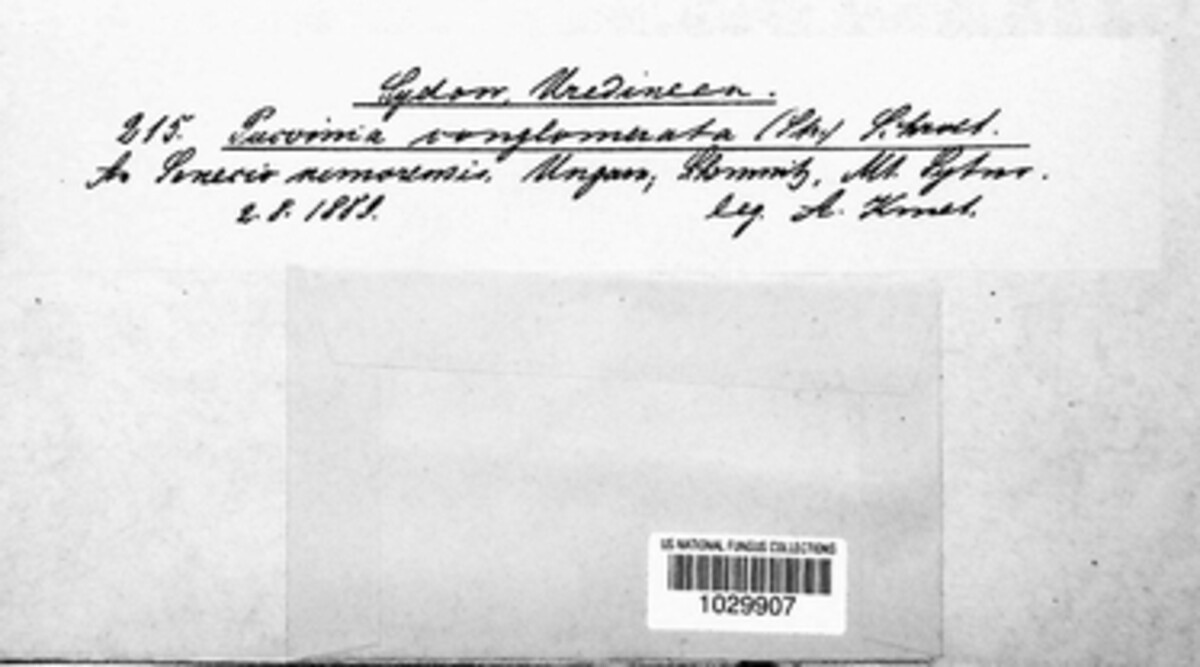 Sydow, Uredineen.
215. Puccinia conglomerata (Str.) Schroet.
An Senecio nemorensis. Ungarn, Mt. Sytno.
2.8. 1889. leg. A. Kmet.
US NATIONAL FUNGUS COLLECTIONS
1029907